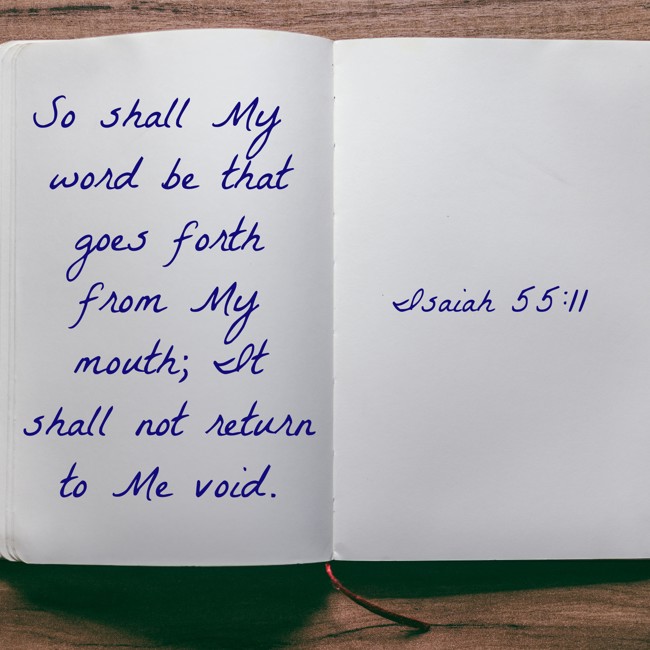 So shall My
word be that
goes forth
from My
mouth; It
shall not return
to Me void.
Isaiah 55:11